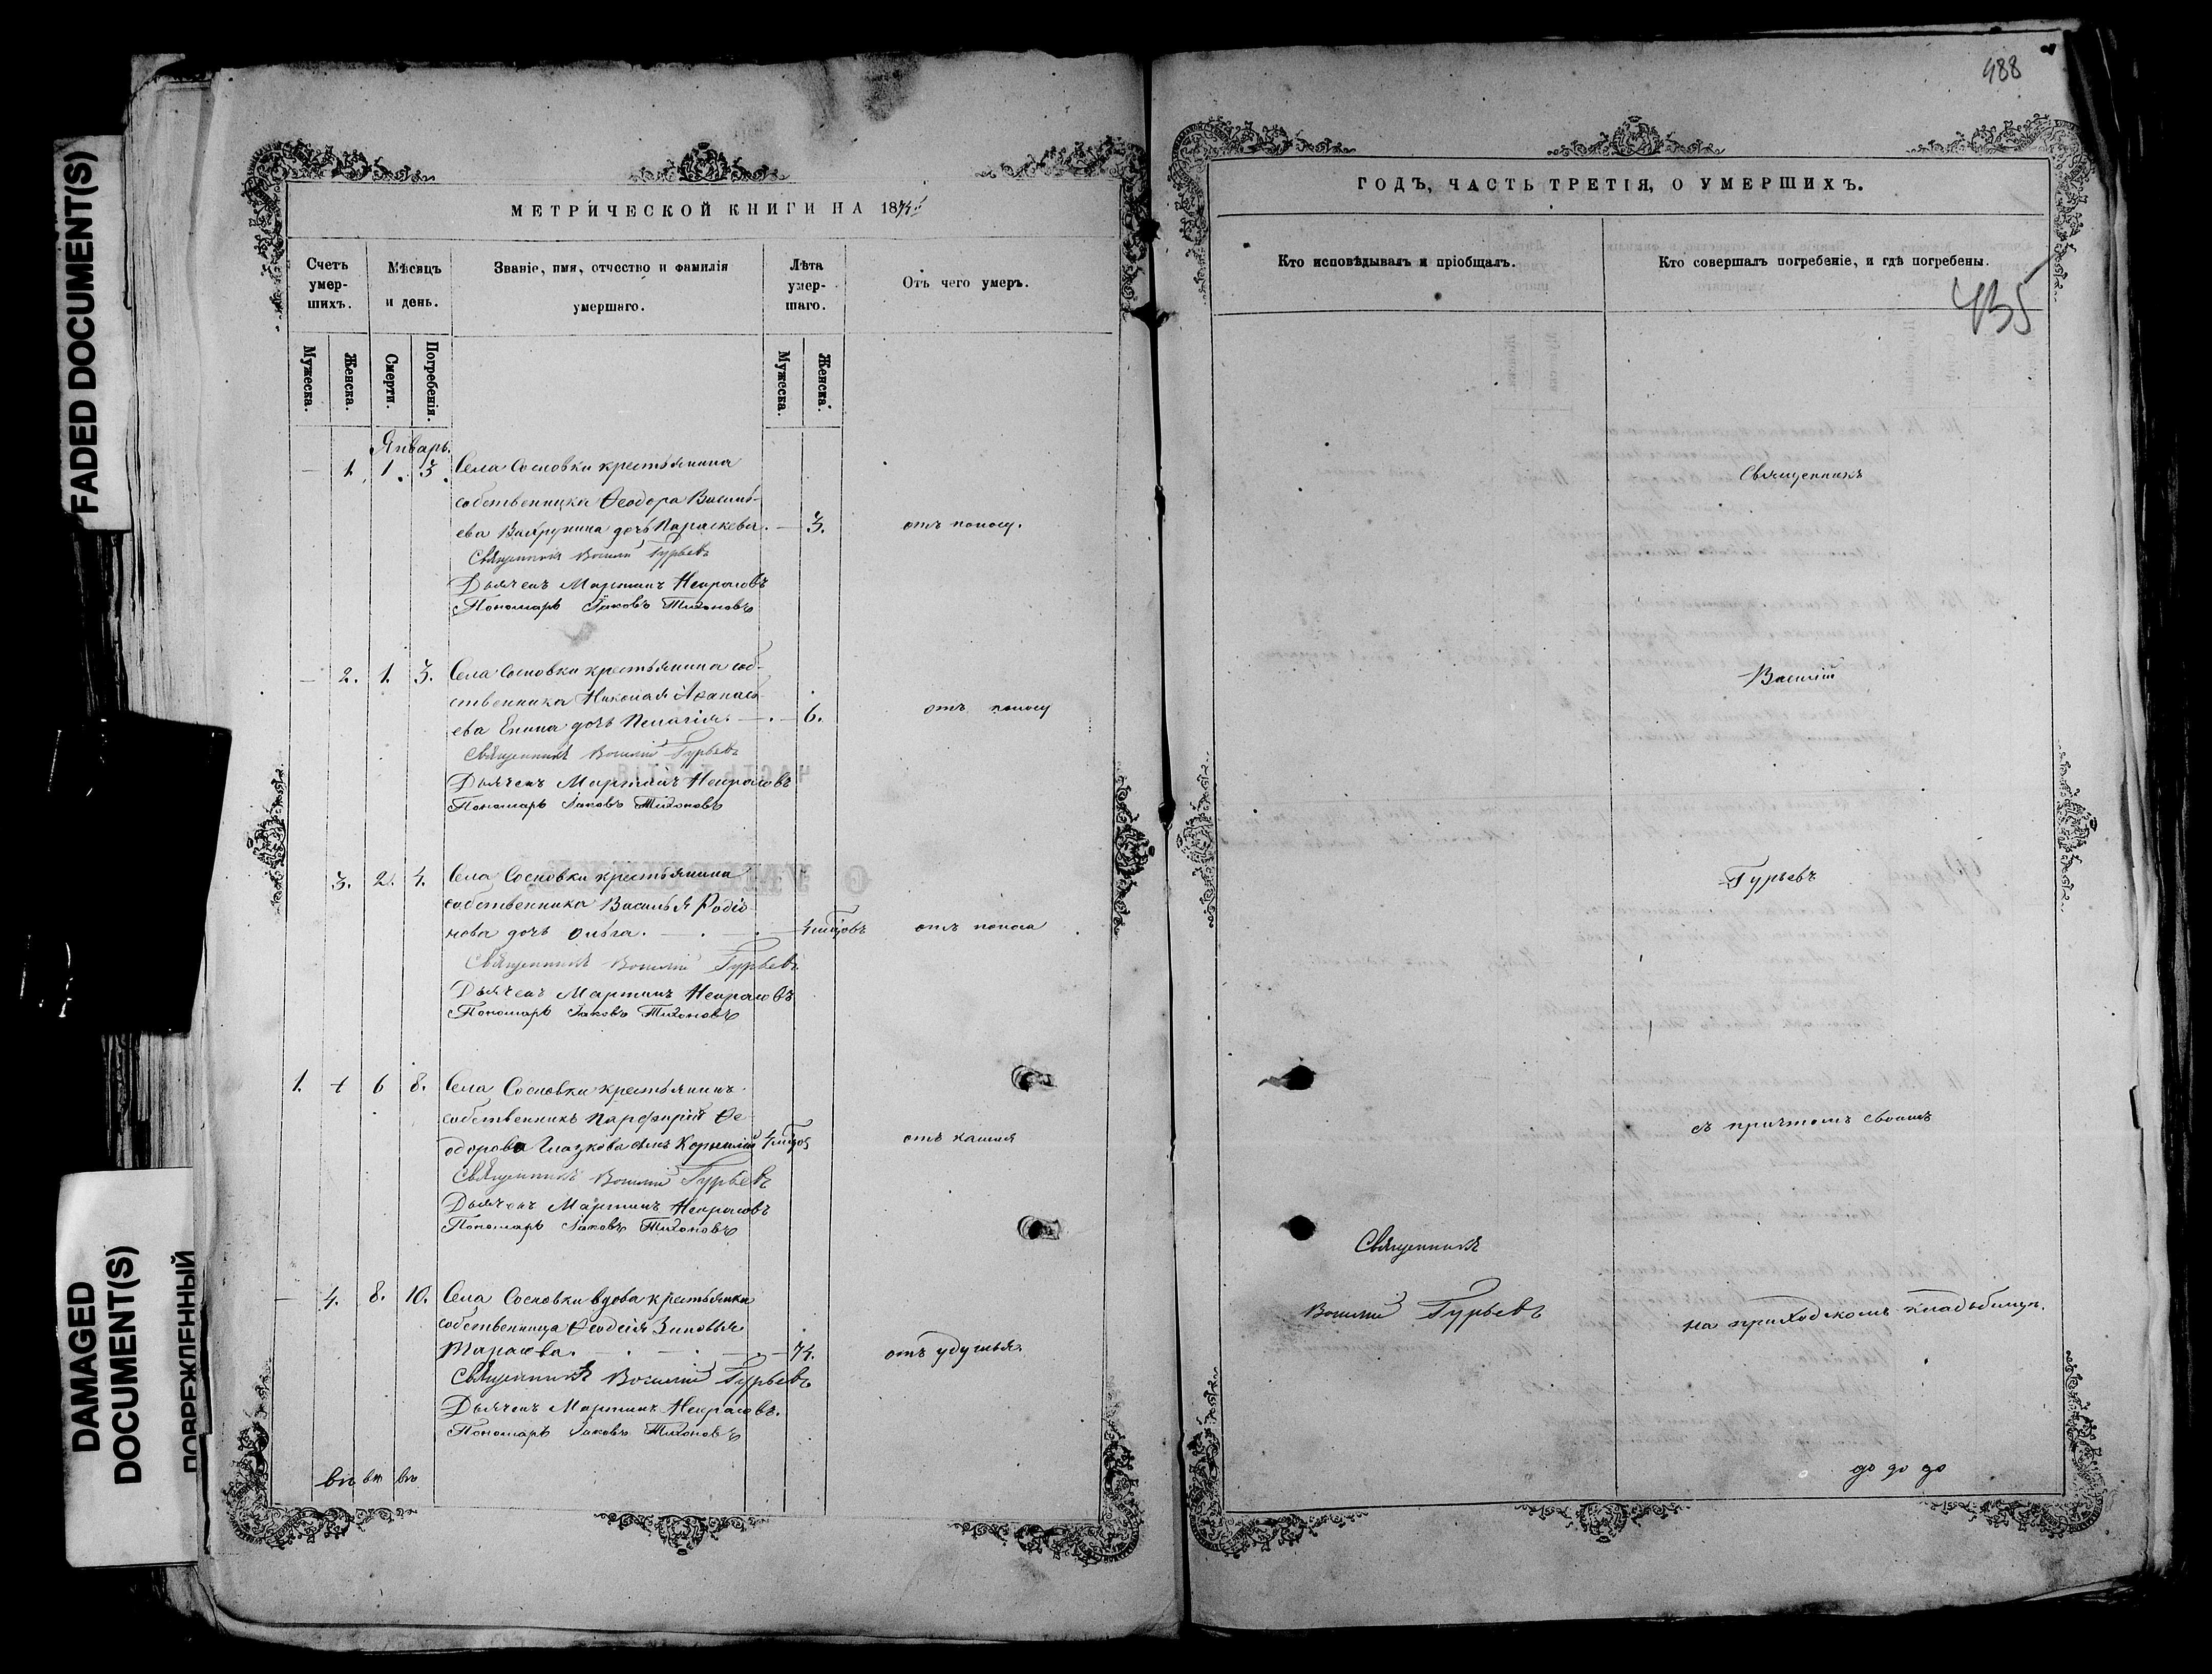 FADED DOCUMENT(S)
DAMAGED
DOCUMENT(S)
ПОВРЕЖДЕННЫЙ
МЕТРИЧЕСКОЙ КНИГИ НА 1874й
Счетъ умер-шихъ.
Мѣсяцъ и день.
Званіе, имя, отчество и фамилія умершаго.
Лѣта умер-шаго.
Отъ чего умеръ.
Мужеска.
Женска.
Смерти.
Погребенія.
Мужеска.
Женска.
Январь.
— 1. 1. 3. Села Сосновки крестьянина
собственника Ѳеодора Василь-
ева дочь Параскева. — 3. отъ поносу.
Священникъ Василий Гурьевъ
Дьячекъ Мартинъ Некрасовъ
Пономарь Іаковъ Тихоновъ
— 2. 1. 3. Села Сосновки крестьянина соб-
ственника Николая Аѳанась-
ева Енина дочь Пелагія. — . — 6. отъ поносу
Священникъ Василий Гурьевъ
Дьячекъ Мартинъ Некрасовъ
Пономарь Іаковъ Тихоновъ
3. 2. 4. Села Сосновки крестьянина
собственника Василья Родіо-
нова дочь Ольга. — . — . — отъ поноса
Священникъ Василий Гурьевъ
Дьячекъ Мартинъ Некрасовъ
Пономарь Іаковъ Тихоновъ
1. 6 8. Села Сосновки крестьянинъ
собственникъ Парфирій Ѳе-
одорова Глазкова сынъ Корнилій отъ кашля
Священникъ Василий Гурьевъ
Дьячекъ Мартинъ Некрасовъ
Пономарь Іаковъ Тихоновъ
— 4. 8. 10. Села Сосновки вдова крестьянка
собственница Ѳеодосія Зиновья
Тарасова. — . — . — . — 74. отъ удушья.
Священникъ Василий Гурьевъ
Дьячекъ Мартинъ Некрасовъ.
Пономарь Іаковъ Тихоновъ
488
ГОДЪ, ЧАСТЬ ТРЕТІЯ, О УМЕРШИХЪ.
Кто исповѣдывалъ и пріобщалъ.
Кто совершалъ погребеніе, и гдѣ погребены.
435
Священникъ
Василій
Гурьевъ
съ причтомъ своимъ
Священникъ
Василий Гурьевъ
на приходскомъ кладьбищѣ.
до до до